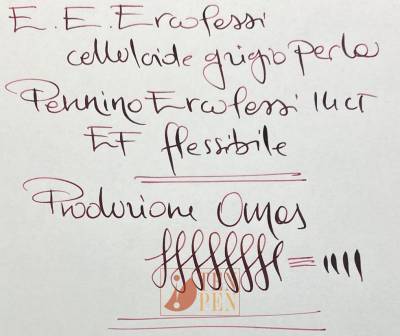 E. E. Ercolessi
celluloide grigio perla
Pennino Ercolessi 14 CT
EF flessibile
Produzione Omas
TEN
PEN